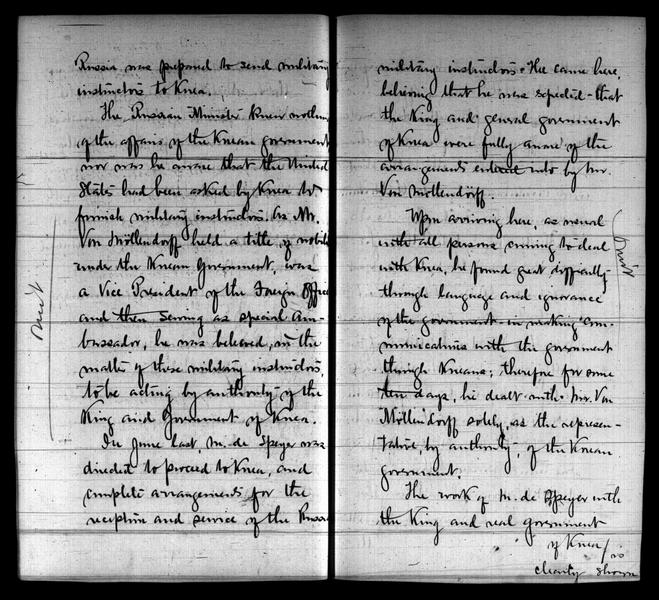 Russia was prepared to send military
instructors to Korea.
The Russian Minister knew nothing
of the affairs of the Korean government
nor was he aware that the United
States had been asked by Korea to
furnish military instructors. As Mr.
Von Möllendorff held a title of nobility
under the Korean Government, was
a Vice President of the Foreign Office
and then serving as special Am-
bassador, he was believed, in the
matter of these military instructors,
to be acting by authority of the
King and Government of Korea.
In June last, M. de Speyer was
directed to proceed to Korea, and
complete arrangements for the
reception and service of the Russian
Omit
military instructors. He came here,
believing that he was expected - that
the King and general government
of Korea were fully aware of the
arrangements entered into by Mr.
Von Möllendorff.
Upon arriving here, as usual
with all persons coming to deal
with Korea, he found great difficulty
through language and ignorance
of the government in making com-
munications with the government
through Koreans; therefore for some
ten days, he dealt with Mr. Von
Möllendorff solely, as the represen-
tative, by authority of the Korean
government.
The work of M. de Speyer with
the King and real government
of Korea / is
clearly shown
Omit